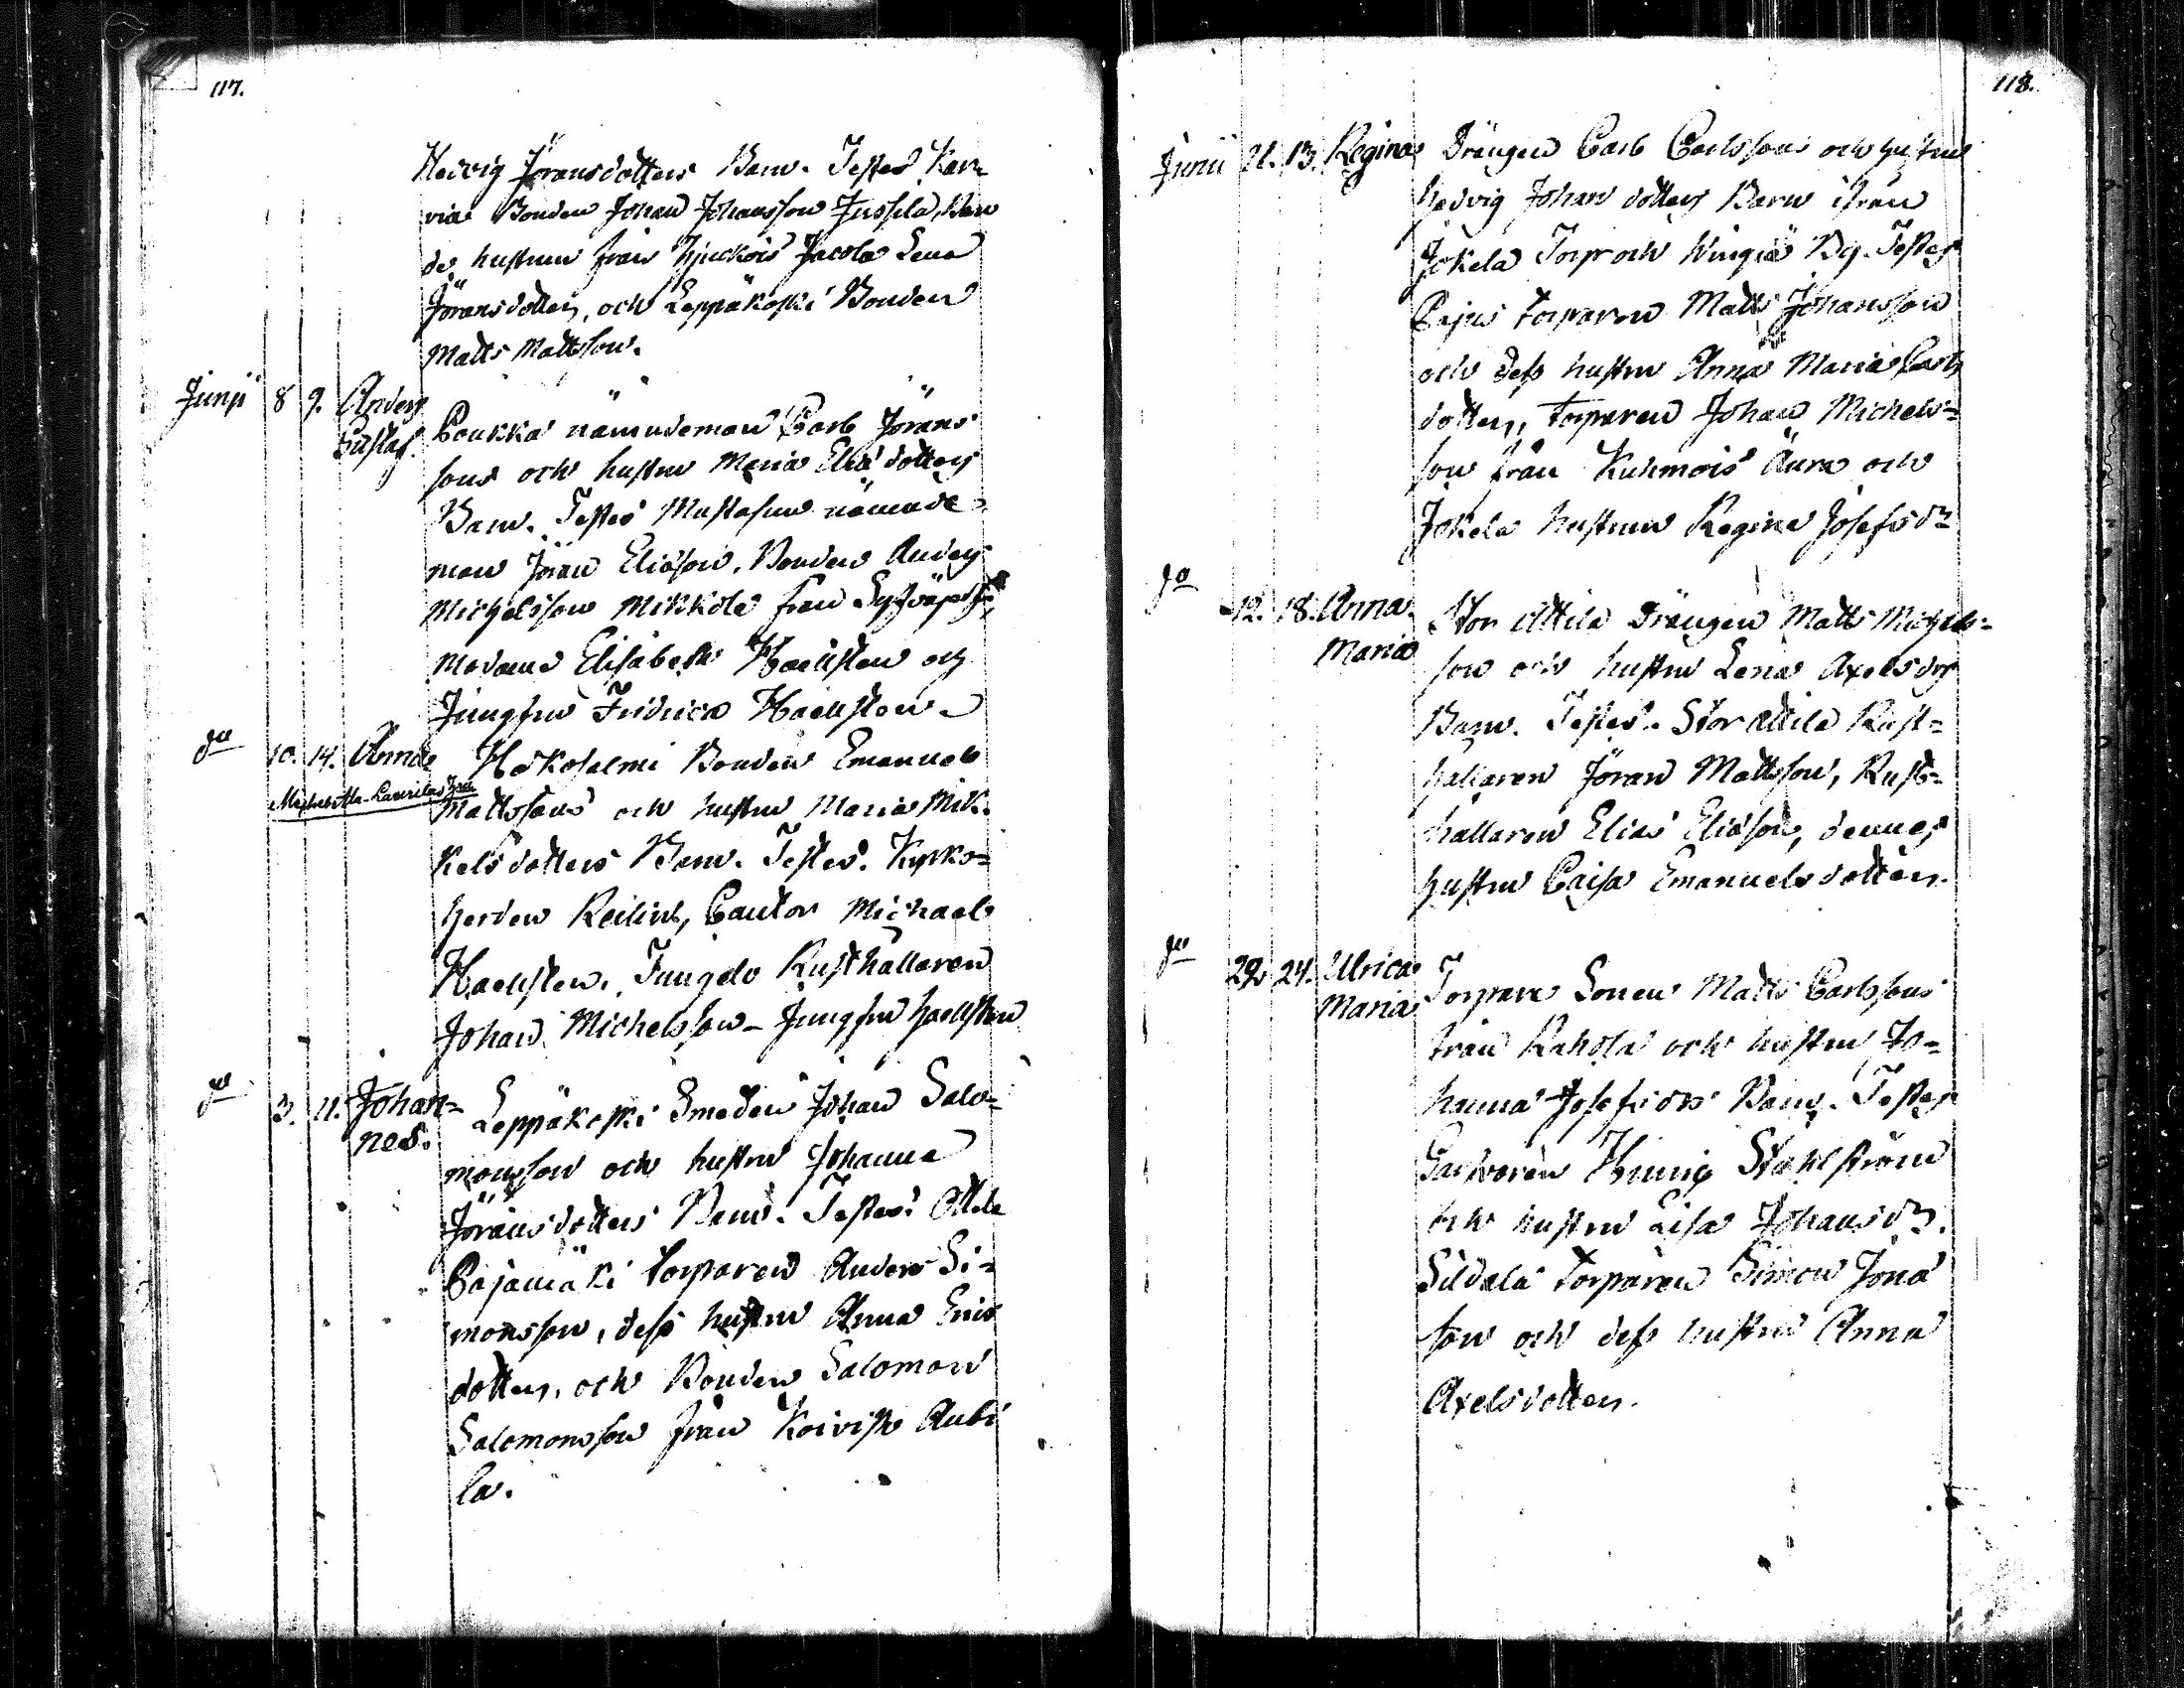 117.
Hedvig Jöransdotters Barn. Testes Kar-
via Bonden Johan Johansson Jussila, Bon
de hustrun från Jacola Lena
Jöransdotter, och Leppäkoski Bonden
Matts Mattsson.
Junii 8 9. Anders Gustaf. Poukka nämndeman Carl Jörans
sons och hustru Maria Eliædotters
Barn. Testes Mustasuo nämnde-
man Jöran Eliæson, Bonden Anders
Michelsson Mikkola från
Madame Elisabeth Haellsten och
Jungfru Fridrica Haellsten
do 10. 14. Anna Hokosalmi Bonden Emanuel
Mattssons och hustru Maria Mik-
kelsdotters Barn. Testes. Kyrko-
herden Reilin, Cantor Michael
Haellsten. Rusthållaren
Johan Michelsson - Jungfru Haellsten
do 3. 11. Johan-
nes. Leppäkoski Smeden Johan Salo-
monsson och hustru Johanna
Jöransdotters Barn. Testes: Attila
Pajamäki torparen Anders Si-
monsson, dess hustru Anna Erics
dotter, och Bonden Salomon
Salomonsson från Koivisto Anti
la.
118.
Junii 11. 13. Regina Drängen Carl Carlssons och hustru
Hedvig Johansdotters Barn ifrån
Jokela Torp och By. Testes
Pajus torparen Matts Johansson
och dess hustru Anna Maria Carls
dotter, torparen Johan Michels-
son från Kuhmois och
Jokela hustrun Regina Josefsdr
do 12. 18. Anna Maria Stor Attila Drängen Matts Michels-
son och hustru Lena Axelsdrs
Barn. Testes. Stor Attila Rust-
hållaren Jöran Mattsson, Rust-
hållaren Elias Eliæson, dennes
hustru Caisa Emanuelsdotter.
do 22. 24. Ulrica Maria Torpare Sonen Matts Carlssons
från Rahola och hustru Jo-
hanna Josefsdrs Barn. Testes
Garfvaren Stahlström
och hustru Lisa Johansdr.
torparen Simon Jona
son och dess hustru Anna
Axelsdotter.